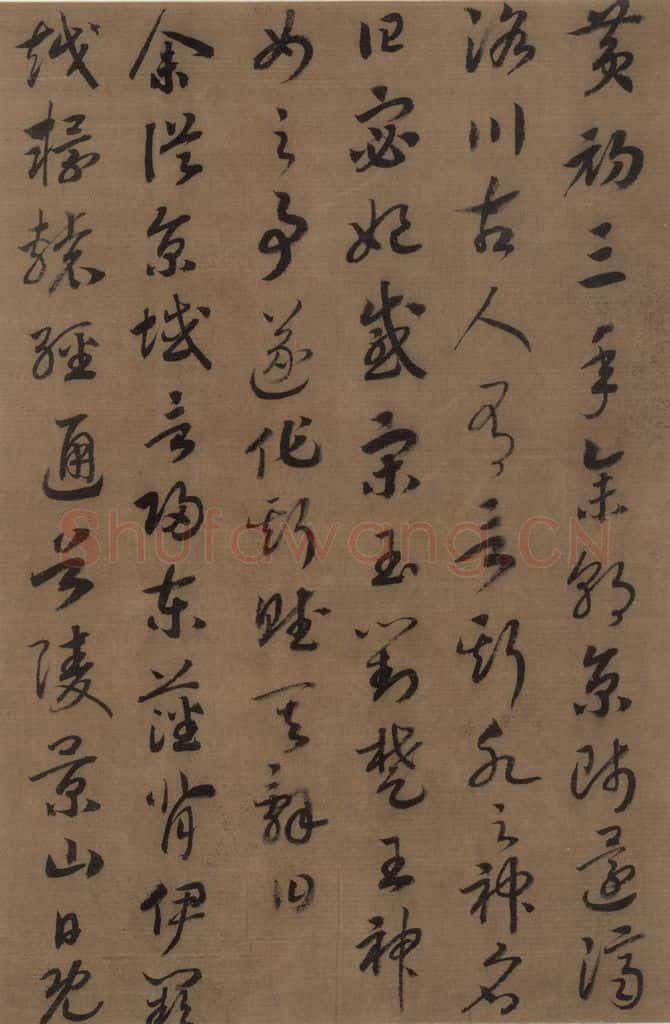 黄初三年余朝京师还济
洛川古人有言斯水之神名
曰宓妃感宋玉对楚王神
女之事遂作斯赋其辞曰
余从京域言归东藩背伊阙
越轘辕经通谷陵景山日既
Shufawang.CN